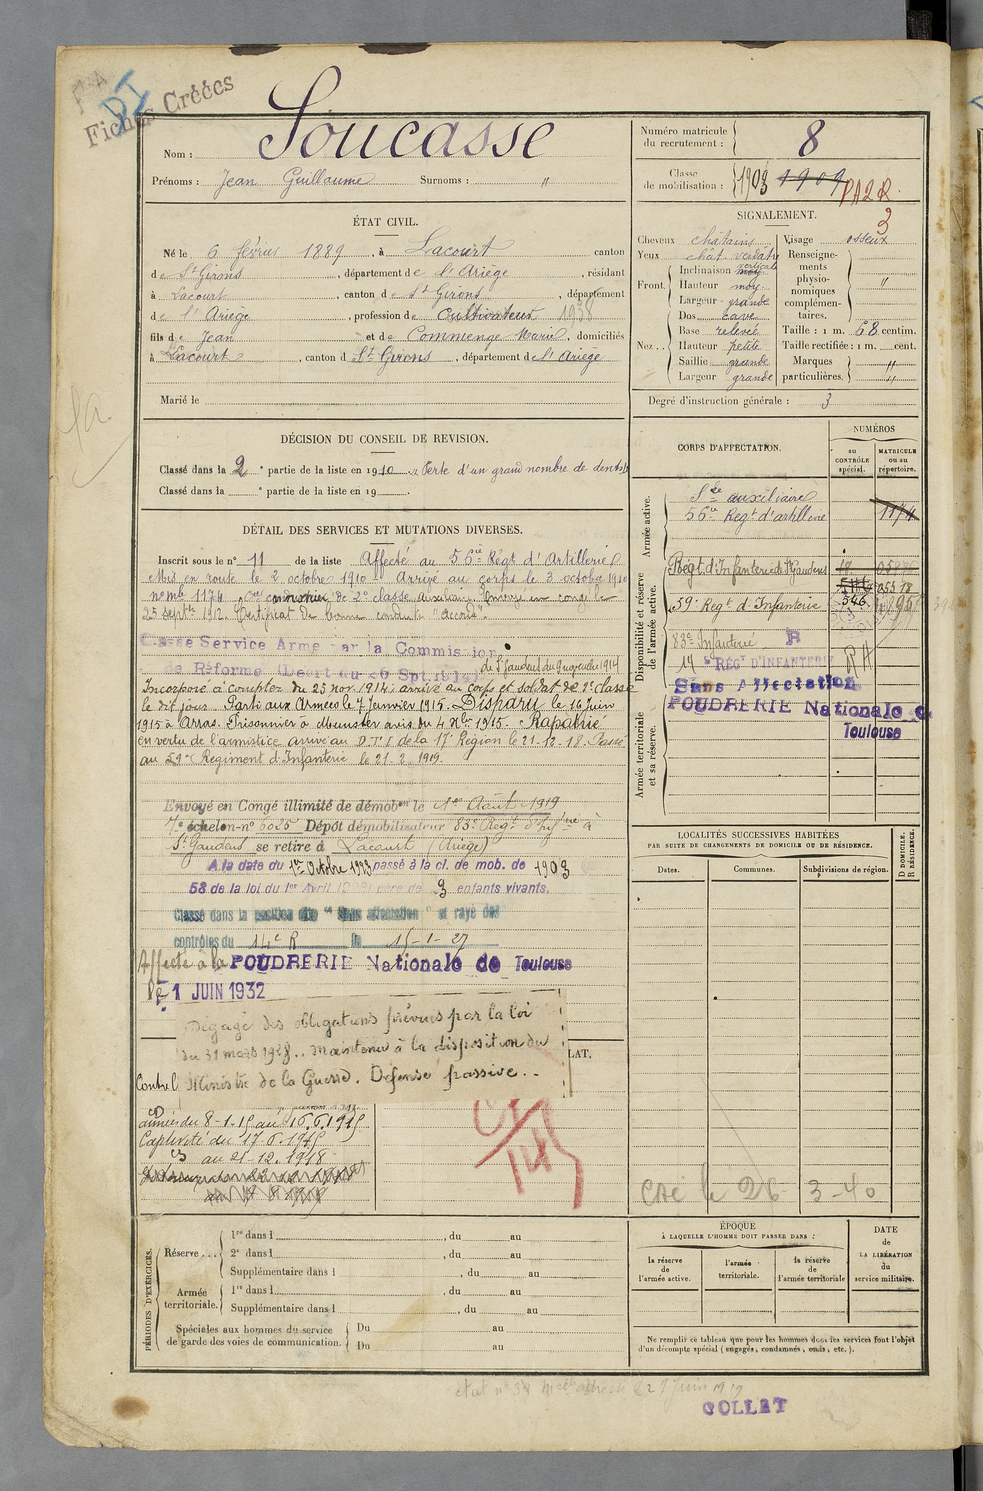 Fiches Créées
Nom : Soucasse
Prénoms : Jean Guillaume Surnoms : "
Numéro matricule du recrutement : 8
Classe de mobilisation : 1903 1909 PA2R.
3
ÉTAT CIVIL.
Né le 6 février 1889, à Lacourt canton
de St Girons, département de l'Ariège, résidant
à Lacourt, canton de St Girons, département
de l'Ariège, profession de Cultivateur 1938
fils de Jean et de Commenge Marie, domiciliés
à Lacourt, canton d St Girons, département de l'Ariège
Marié le
SIGNALEMENT.
Cheveux châtains
Yeux chât. verdâtre
Front. Inclinaison moy. verticale
Hauteur moy.
Largeur grande
Nez.. Dos cave
Base relevée
Hauteur petite
Saillie grande
Largeur grande
Visage osseux
Renseignements physionomiques complémentaires. "
Taille : 1 m. 68 centim.
Taille rectifiée : 1 m. cent.
Marques particulières. "
"
Degré d'instruction générale : 3
DÉCISION DU CONSEIL DE REVISION.
Classé dans la 2e partie de la liste en 1910. Perte d'un grand nombre de dents
Classé dans la e partie de la liste en 19 .
DÉTAIL DES SERVICES ET MUTATIONS DIVERSES.
Inscrit sous le n° 11 de la liste Affecté au 56e Régt d'Artillerie
Mis en route le 2 octobre 1910. Arrivé au corps le 3 octobre 1910
n° mle 1174, canonnier de 2e classe auxiliaire. Envoyé en congé le
25 septbre 1912. Certificat de bonne conduite "Accordé".
Classé Service Armé par la Commission
de Réforme (Décret du 26 Sept. 1914) de St Gaudens du 9 novembre 1914
Incorporé à compter du 25 nov. 1914, arrivé au corps et soldat de 2e classe
le dit jour. Parti aux Armées le 7 Janvier 1915. Disparu le 16 juin
1915 à Arras. Prisonnier à Munster avis du 4 Xbre 1915. Rapatrié
en vertu de l'armistice arrivé au D.T.I. de la 17e Région le 21-12-18. Passé
au 59e Régiment d'Infanterie le 21-2-1919.
Envoyé en Congé illimité de démobon le 1er Août 1919
7e échelon n° 6025 Dépôt démobilisateur 83e Régt d'Infrie à
St Gaudens se retire à Lacourt (Ariège)
A la date du 1er Octobre 1923 passé à la cl. de mob. de 1903
58 de la loi du 1er Avril 1923) père de 3 enfants vivants.
Classé dans la position dite "Sans affectation" et rayé des
contrôles du 14e R le 15-1-27
Affecté à la POUDRERIE Nationale de Toulouse
le 1 JUIN 1932
Dégagé des obligations prévues par la loi
du 31 mars 1928.. Maintenu à la disposition du
Ministre de la Guerre. Défense passive.-
LAT.
Contre l
CD
armées du 8-1-15 au 16.6.1915
Captivité du 17.6.1915
CS au 21-12.1918
CORPS D'AFFECTATION.
NUMÉROS
au CONTRÔLE spécial.
MATRICULE ou au répertoire.
Armée active.
Son auxiliaire
56e Régt d'artillerie 1174
Disponibilité et réserve de l'armée active.
Régt. d'Infanterie de St Gaudens
59e Régt d'Infanterie 546
83e Infanterie R
14e RÉGt D'INFANTERIE RA
Sans Affectation
POUDRERIE Nationale de
Toulouse
Armée territoriale et sa réserve.
LOCALITÉS SUCCESSIVES HABITÉES
PAR SUITE DE CHANGEMENTS DE DOMICILE OU DE RÉSIDENCE.
Dates. Communes. Subdivisions de région. D DOMICILE. R RÉSIDENCE.
Cré le 26-3-40
PÉRIODES D'EXERCICES.
Réserve... 1re dans l , du au
2e dans l , du au
Supplémentaire dans l , du au
Armée territoriale. 1re dans l , du au
Supplémentaire dans l , du au
Spéciales aux hommes du service de garde des voies de communication. Du au
Du au
ÉPOQUE
À LAQUELLE L'HOMME DOIT PASSER DANS :
la réserve de l'armée active.
l'armée territoriale.
la réserve de l'armée territoriale
DATE DE LA LIBÉRATION du service militaire.
Ne remplir ce tableau que pour les hommes dont les services font l'objet
d'un décompte spécial (engagés, condamnés, omis, etc.).
COLLAT